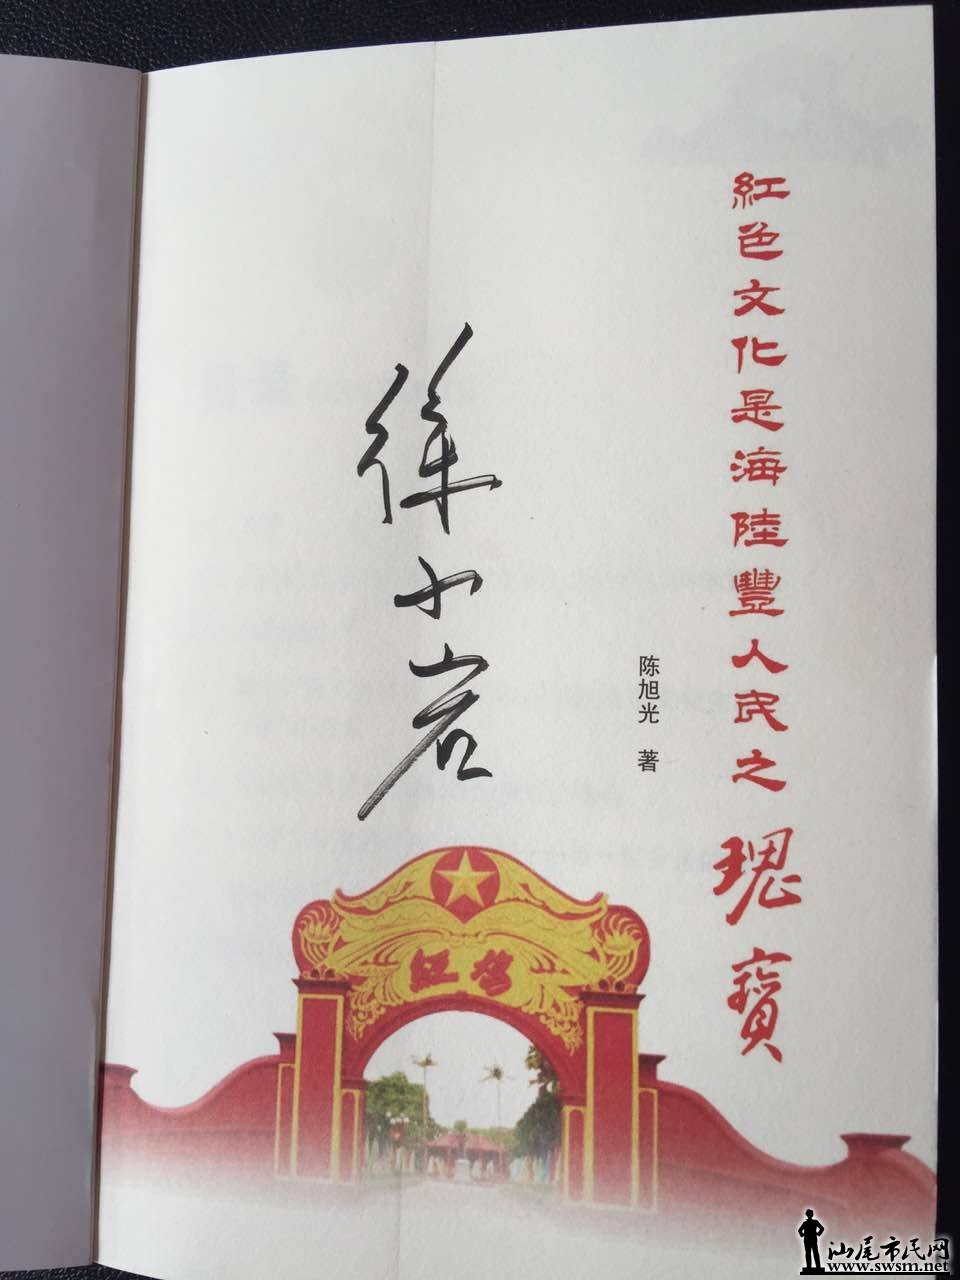 紅色文化是海陸豐人民之瑰寶
陈旭光 著
徐小岩
红场
汕尾市民网
www.swsm.net